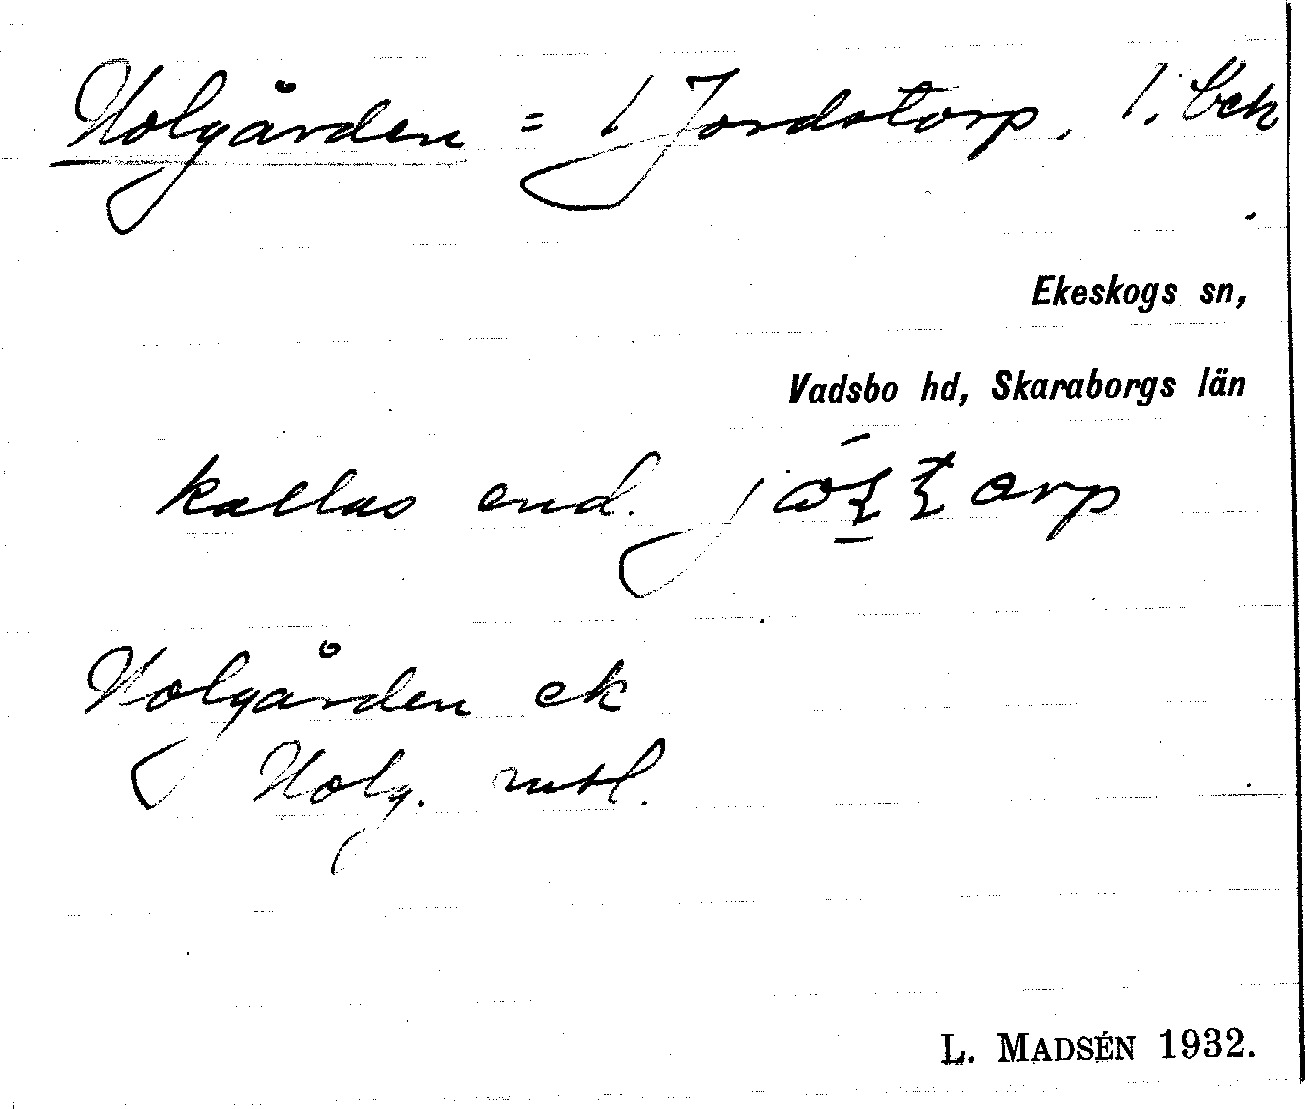 Holgården = 1 Jordstorp, 1. bek
Ekeskogs sn,
Vadsbo hd, Skaraborgs län
kallas end.
Holgården ek
Holg. mtl.
L. MADSÉN 1932.